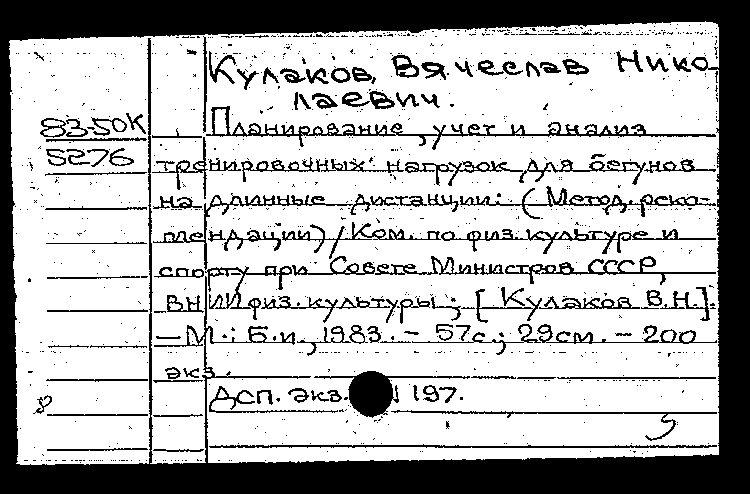 Кулаков, Вячеслав Нико-
лаевич.
83-50К
5276
Планирование, учет и анализ
тренировочных нагрузок для бегунов
на длинные дистанции: (Метод. реко-
мендации) / Ком. по физ. культуре и
спорту при Совете Министров СССР,
ВНИИ физ. культуры; [Кулаков В.Н.].
— М.: Б.и., 1983. - 57с.; 29см. - 200
экз.
Дсп. экз. 197.